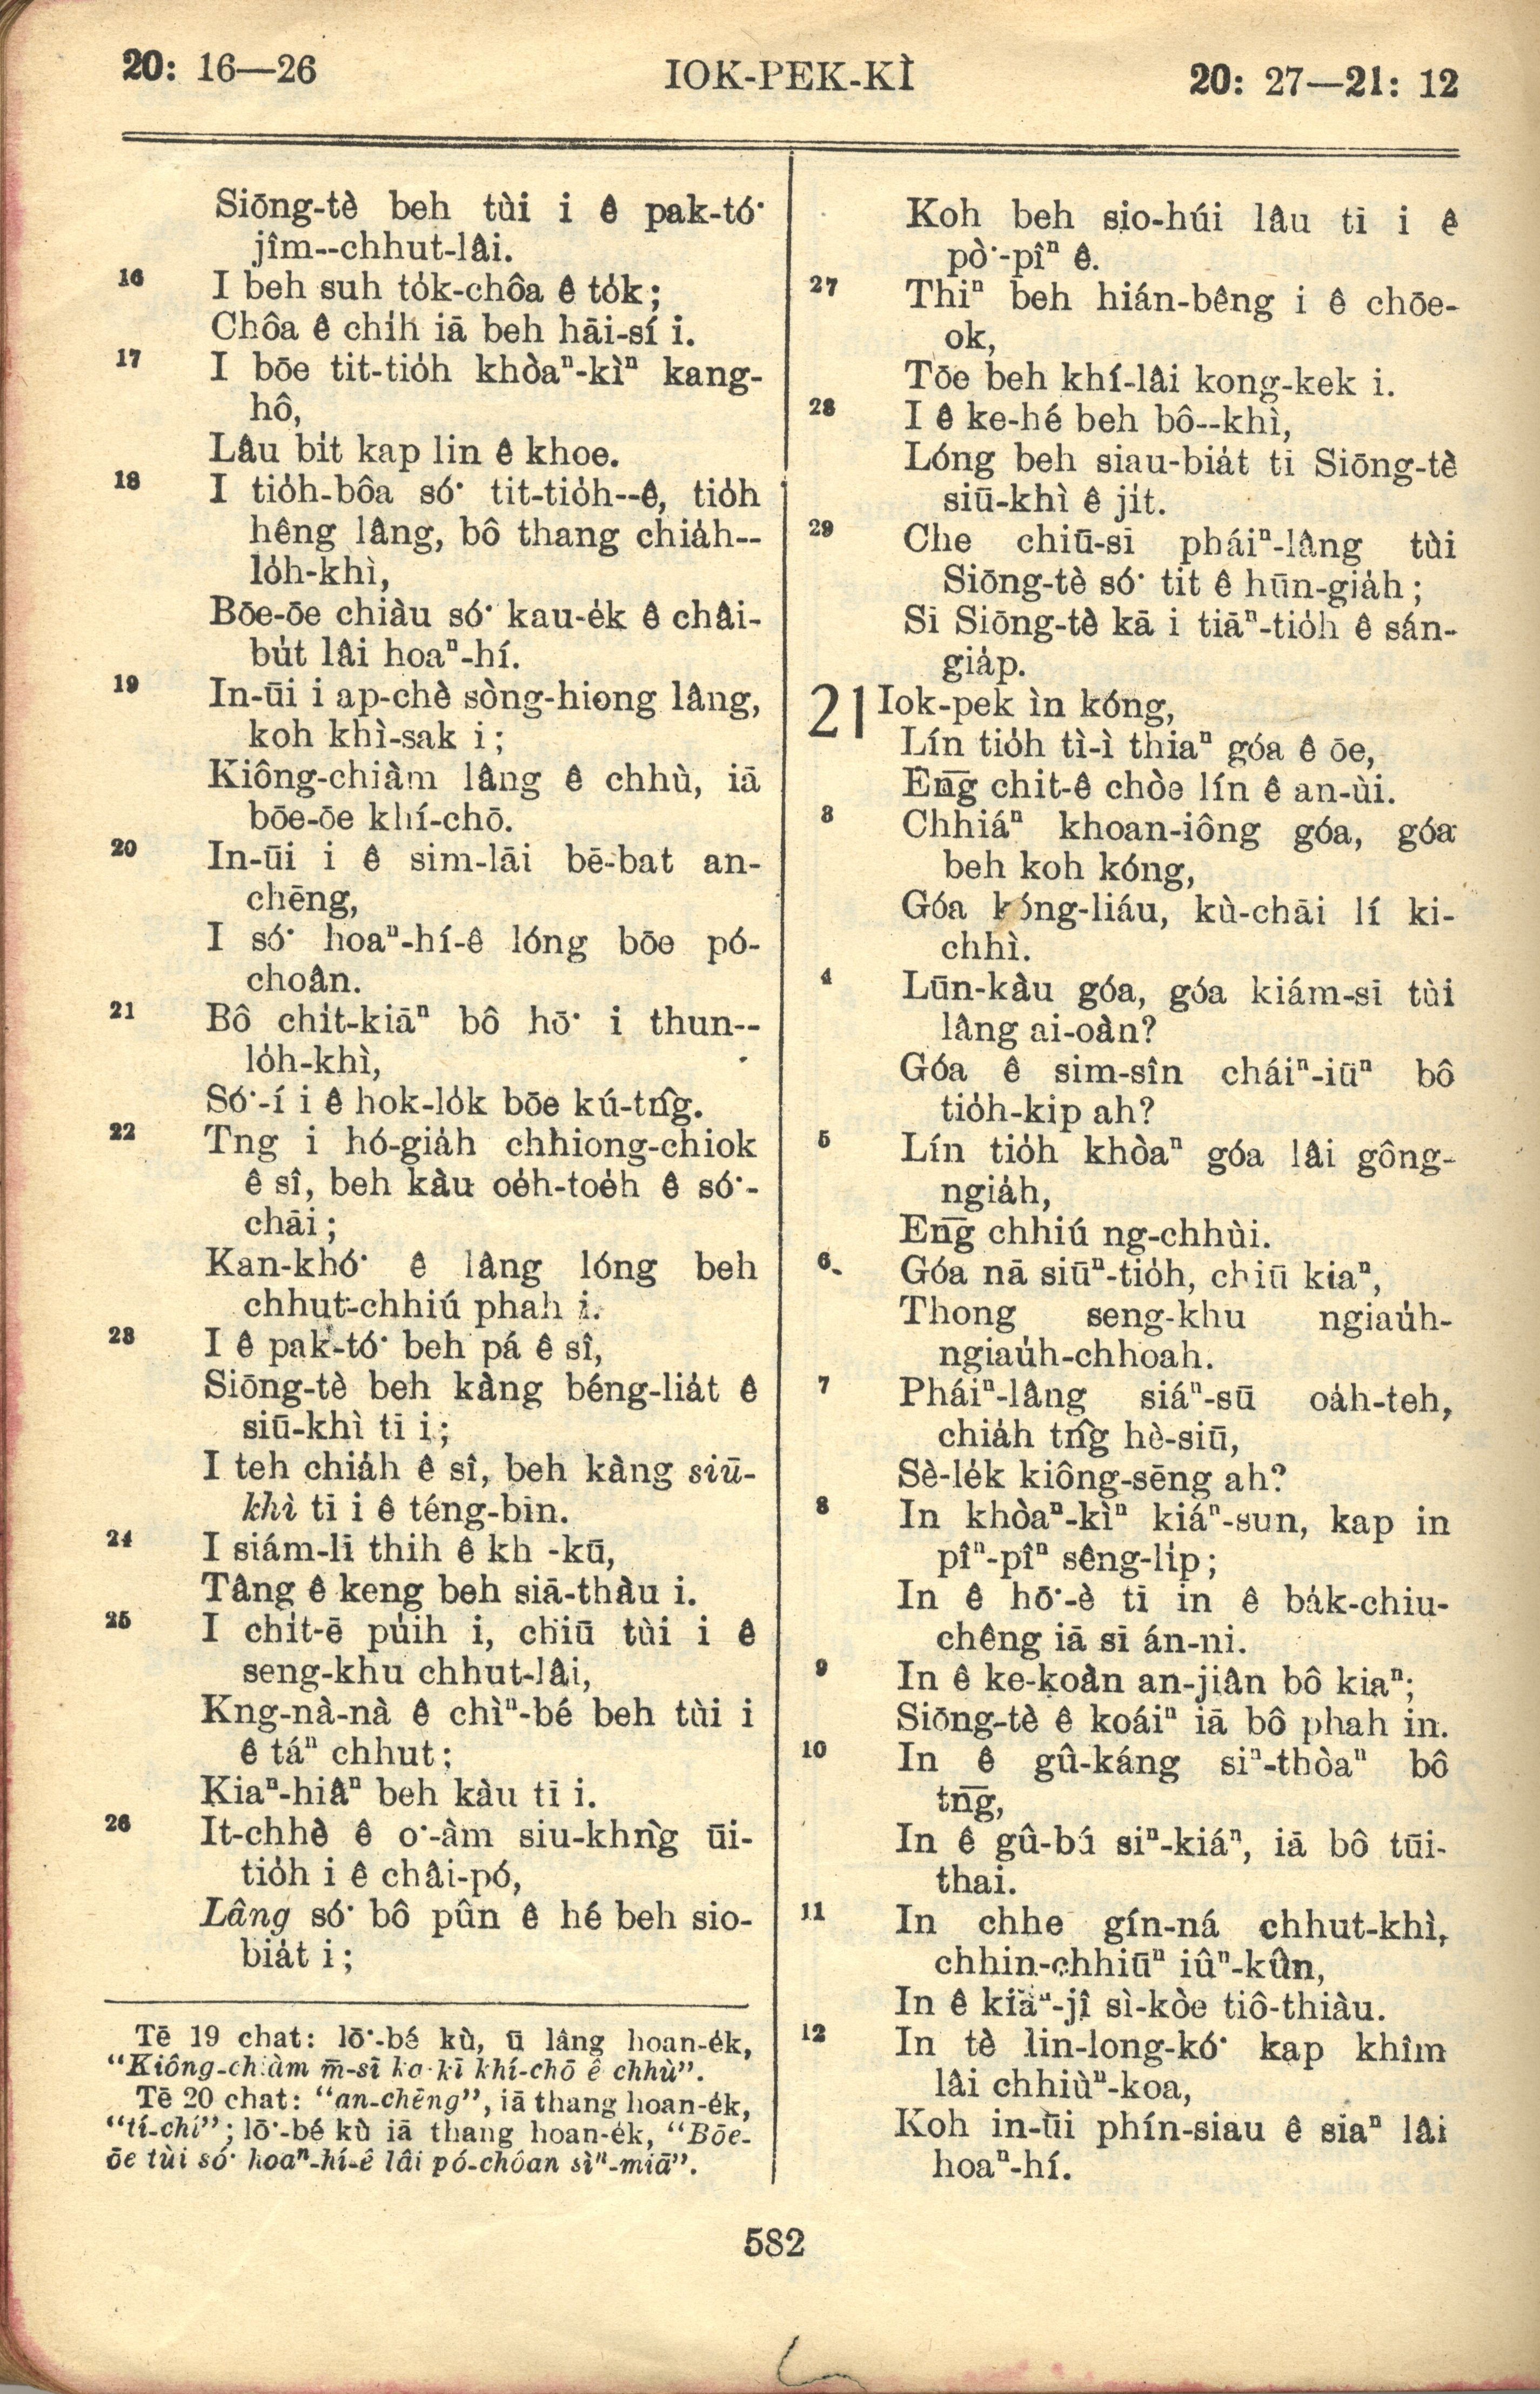 20: 16—26
IOK-PEK-KÌ
20: 27—21: 12
Siōng-tè beh tùi i ê pak-tó͘
jîm--chhut-lâi.
16 I beh suh to̍k-chôa ê to̍k;
Chôa ê chi̍h iā beh hāi-sí i.
17 I bōe tit-tio̍h khòaⁿ-kìⁿ kang-
hô,
Lâu bi̍t kap lin ê khoe.
18 I tio̍h-bôa só͘ tit-tio̍h--ê, tio̍h
hêng lâng, bô thang chia̍h--
lo̍h-khì,
Bōe-ōe chiàu só͘ kau-e̍k ê châi-
bu̍t lâi hoaⁿ-hí.
19 In-ūi i ap-chè sòng-hiong lâng,
koh khì-sak i;
Kiông-chiàm lâng ê chhù, iā
bōe-ōe khí-chō.
20 In-ūi i ê sim-lāi bē-bat an-
chēng,
I só͘ hoaⁿ-hí-ê lóng bōe pó-
choân.
21 Bô chi̍t-kiāⁿ bô hō͘ i thun--
lo̍h-khì,
Só͘-í i ê hok-lo̍k bōe kú-tn̂g.
22 Tng i hó-gia̍h chhiong-chiok
ê sî, beh kàu oe̍h-toe̍h ê só͘-
chāi;
Kan-khó͘ ê lâng lóng beh
chhut-chhiú phah i.
23 I ê pak-tó͘ beh pá ê sî,
Siōng-tè beh kàng béng-lia̍t ê
siū-khì tī i;
I teh chia̍h ê sî, beh kàng siū-
khì tī i ê téng-bīn.
24 I siám-lī thih ê kh -kū,
Tâng ê keng beh siā-thàu i.
25 I chi̍t-ē pu̍ih i, chiū tùi i ê
seng-khu chhut-lâi,
Kng-nà-nà ê chìⁿ-bé beh tùi i
ê táⁿ chhut;
Kiaⁿ-hiâⁿ beh kàu tī i.
26 It-chhè ê o͘-àm siu-khǹg ūi-
tio̍h i ê châi-pó,
Lâng só͘ bô pûn ê hé beh sio-
bia̍t i;
Tē 19 chat: lō͘-bé kù, ū lâng hoan-e̍k,
“Kiông-chiàm m̄-sī ka-kī khí-chō ê chhù”.
Tē 20 chat: “an-chēng”, iā thang hoan-e̍k,
“tí-chí”; lō͘-bé kù iā thang hoan-e̍k, “Bōe-
ōe tùi só͘ hoaⁿ-hí-ê lâi pó-chôan sìⁿ-miā”.
Koh beh sio-húi lâu tī i ê
pò͘-pîⁿ ê.
27 Thiⁿ beh hián-bêng i ê chōe-
ok,
Tōe beh khí-lâi kong-kek i.
28 I ê ke-hé beh bô--khì,
Lóng beh siau-bia̍t tī Siōng-tè
siū-khì ê ji̍t.
29 Che chiū-sī pháiⁿ-lâng tùi
Siōng-tè só͘ tit ê hūn-gia̍h;
Sī Siōng-tè kā i tiāⁿ-tio̍h ê sán-
gia̍p.
21 Iok-pek ìn kóng,
Lín tio̍h tì-ì thiaⁿ góa ê ōe,
Ēn̄g chit-ê chòe lín ê an-ùi.
3 Chhiáⁿ khoan-iông góa, góa
beh koh kóng,
Góa kóng-liáu, kù-chāi lí ki-
chhì.
4 Lūn-kàu góa, góa kiám-sī tùi
lâng ai-oàn?
Góa ê sim-sîn cháiⁿ-iūⁿ bô
tio̍h-kip ah?
5 Lín tio̍h khòaⁿ góa lâi gông-
ngia̍h,
En̄g chhiú ng-chhùi.
6 Góa nā siūⁿ-tio̍h, chiū kiaⁿ,
Thong seng-khu ngiau̍h-
ngiau̍h-chhoah.
7 Pháiⁿ-lâng siáⁿ-sū oa̍h-teh,
chia̍h tn̂g hè-siū,
Sè-le̍k kiông-sēng ah?
8 In khòaⁿ-kìⁿ kiáⁿ-sun, kap in
pîⁿ-pîⁿ sêng-li̍p;
In ê hō͘-è tī in ê ba̍k-chiu-
chêng iā sī án-ni.
9 In ê ke-koàn an-jiân bô kiaⁿ;
Siōng-tè ê koáiⁿ iā bô phah in.
10 In ê gû-káng siⁿ-thòaⁿ bô
tn̄g,
In ê gû-bú siⁿ-kiáⁿ, iā bô tūi-
thai.
11 In chhe gín-ná chhut-khì,
chhin-chhiūⁿ iûⁿ-kûn,
In ê kiáⁿ-jî sì-kòe tiô-thiàu.
12 In tè lin-long-kó͘ kap khîm
lâi chhiùⁿ-koa,
Koh in-ūi phín-siau ê siaⁿ lâi
hoaⁿ-hí.
582